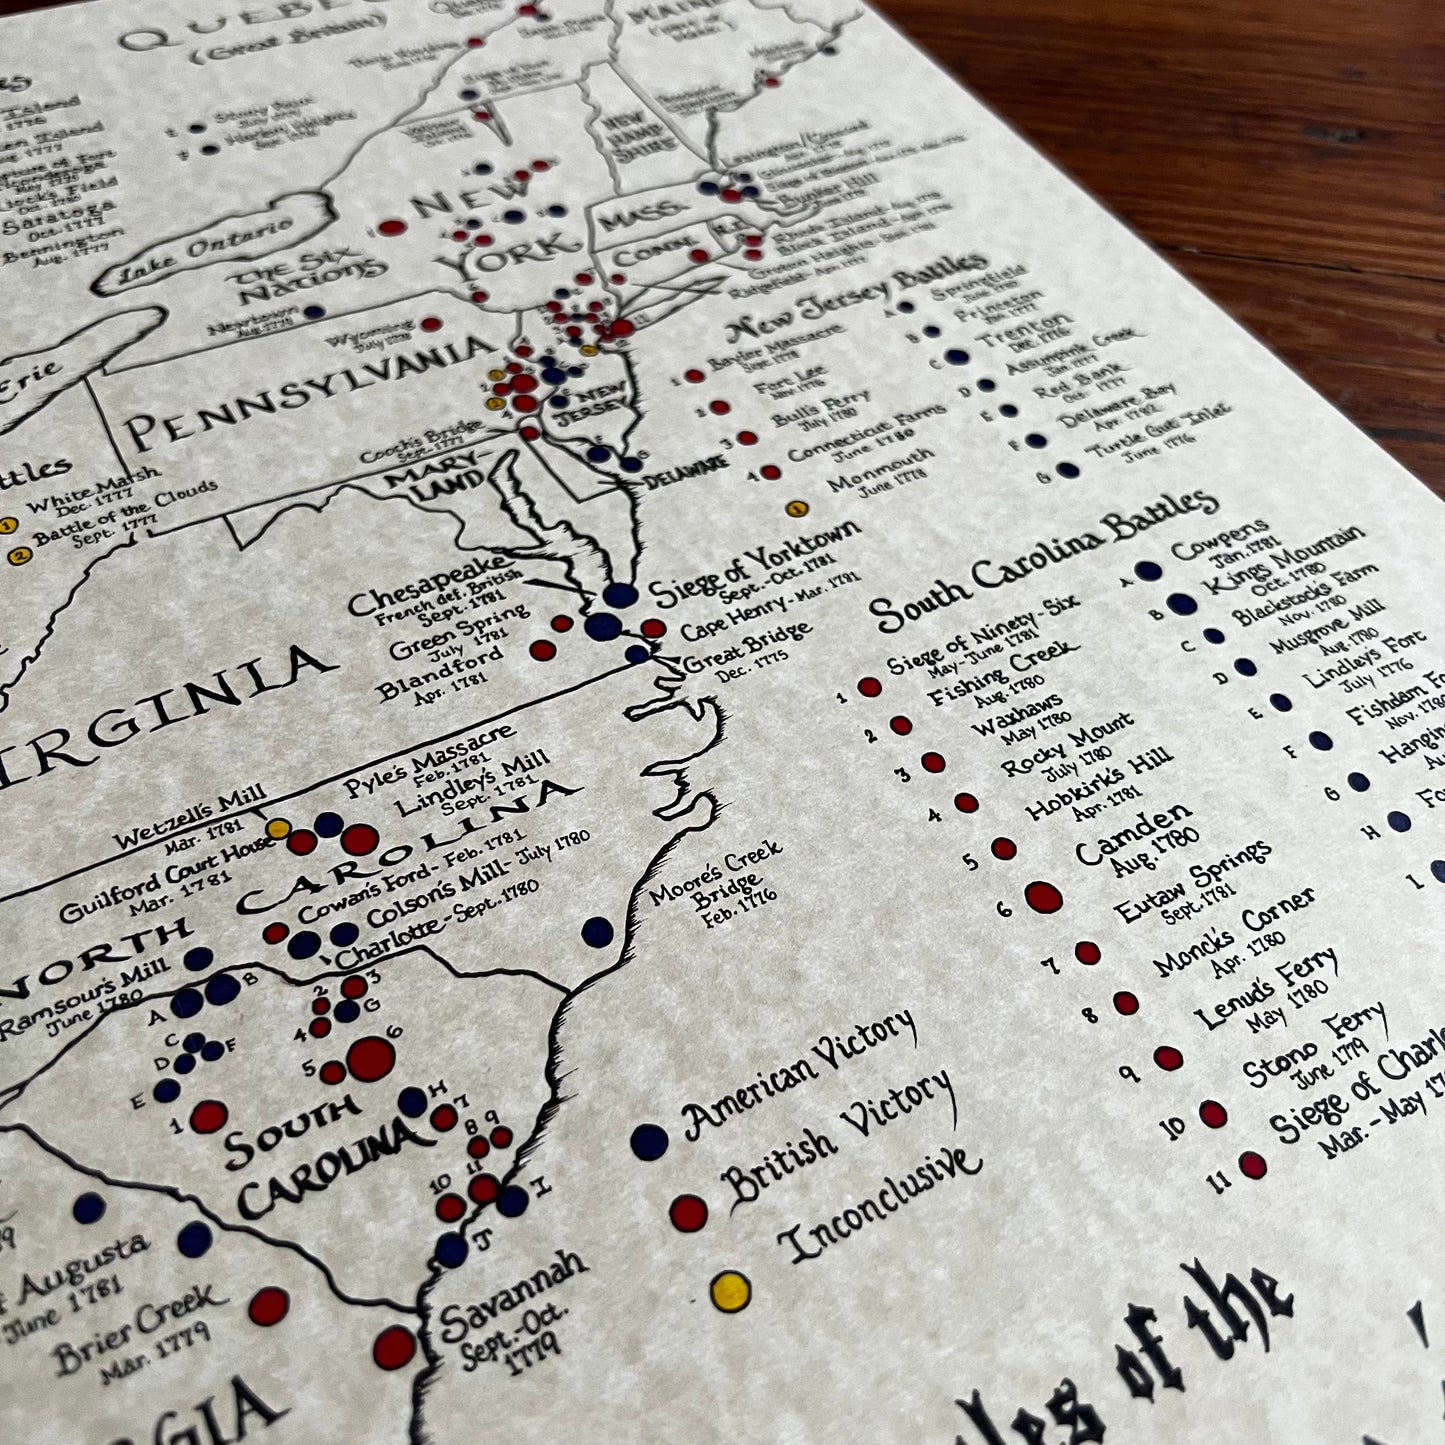 QUEBEC
(Great Britain)
MAINE
NEW
HAMP
SHIRE
Lake Ontario
The Six
Nations
NEW
YORK
MASS.
CONN.
R.I.
Lexington/Concord
Bunker Hill
Saratoga
Oct. 1777
Bennington
Aug. 1777
Newtown
Aug. 1779
Wyoming
July 1778
Erie
PENNSYLVANIA
NEW
JERSEY
Cooch's Bridge
Sept. 1777
MARY-
LAND
DELAWARE
White Marsh
Dec. 1777
Battle of the Clouds
Sept. 1777
1
2
New Jersey Battles
1 Baylor Massacre
Sept. 1778
2 Fort Lee
Nov. 1776
3 Bull's Ferry
July 1780
4 Connecticut Farms
June 1780
1 Monmouth
June 1778
A Springfield
June 1780
B Princeton
Jan. 1777
C Trenton
Dec. 1776
D Assunpink Creek
Jan. 1777
E Red Bank
Oct. 1777
F Delaware Bay
Apr. 1782
G Turtle Gut Inlet
June 1776
Chesapeake
French def. British
Sept. 1781
Green Spring
July 1781
Blandford
Apr. 1781
Siege of Yorktown
Sept.-Oct. 1781
Cape Henry - Mar. 1781
Great Bridge
Dec. 1775
IRGINIA
Wetzell's Mill
Mar. 1781
Guilford Court House
Mar. 1781
Pyle's Massacre
Feb. 1781
Lindley's Mill
Sept. 1781
NORTH CAROLINA
Cowan's Ford - Feb. 1781
Colson's Mill - July 1780
Charlotte - Sept. 1780
Ramsour's Mill
June 1780
Moore's Creek
Bridge
Feb. 1776
A
B
C
D
E
F
G
H
I
J
1
2
3
4
5
6
7
8
9
10
11
SOUTH
CAROLINA
South Carolina Battles
1 Siege of Ninety-Six
May-June 1781
2 Fishing Creek
Aug. 1780
3 Waxhaws
May 1780
4 Rocky Mount
July 1780
5 Hobkirk's Hill
Apr. 1781
6 Camden
Aug. 1780
7 Eutaw Springs
Sept. 1781
8 Monck's Corner
Apr. 1780
9 Lenud's Ferry
May 1780
10 Stono Ferry
June 1779
11 Siege of Charl
Mar. - May 17
A Cowpens
Jan. 1781
B Kings Mountain
Oct. 1780
C Blackstock's Farm
Nov. 1780
D Musgrove Mill
Aug. 1780
E Lindley's Fort
July 1776
F Fishdam Fo
Nov. 1780
G Hangin
Au
H Fo
I
American Victory
British Victory
Inconclusive
Augusta
June 1781
Brier Creek
Mar. 1779
Savannah
Sept.-Oct.
1779
GIA
les of the